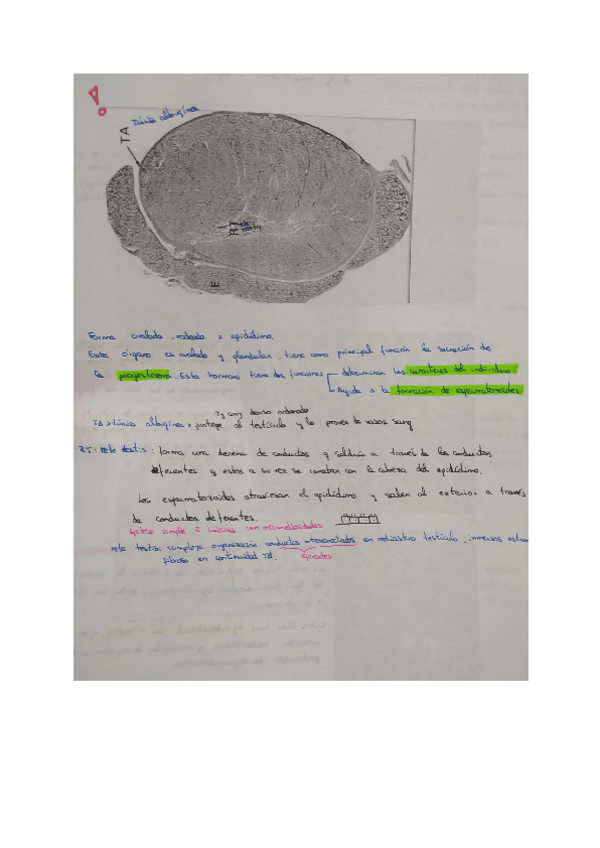 !
TA Túnica albugínea
RT rete testis
E
Forma ovalada, rodeado x epidídimo.
Este órgano es ovalado y glandular, tiene como principal función la secreción de
la progesterona. Esta hormona tiene dos funciones determinan los caracteres del individuo
Ayuda a la formación de espermatozoides
Tj conj denso ordenado
TA: túnica albugínea: protege al testículo y lo provee de vasos sang
RT: rete testis: forma una decena de conductos y saldrán a través de los conductos
eferentes y estos a su vez se conectan con la cabeza del epidídimo.
Los espermatozoides atraviesan el epidídimo y salen al exterior a través
de conductos deferentes.
Epitelio simple cúbico con microvellosidades
rete testis: complejo organización conductos interconectados en mediastino testículo, inmersos estroma
fibroso en continuidad TA. Eferentes